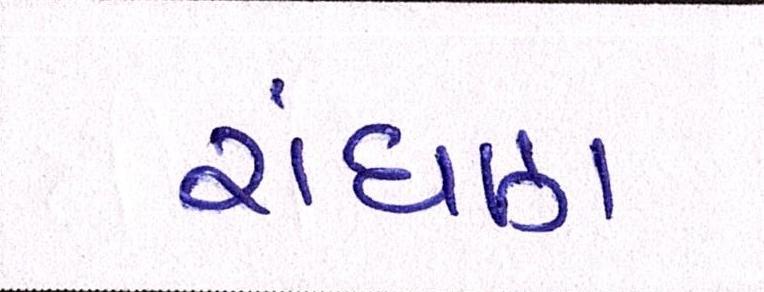 રાંધણ